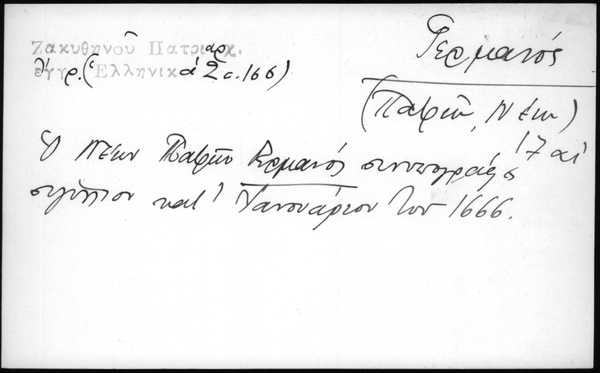 Ζακυθηνοῦ Πατριαρχ.
ἔγγρ. (Ἑλληνικὰ 2 σ. 166)
Γερμανός
(Παφῶν, Νέων)
17 αἰ
Ὁ Νέων Παφῶν Γερμανός συνυπογράφει
σιγίλλιον κατ' Ἰανουάριον τοῦ 1666.